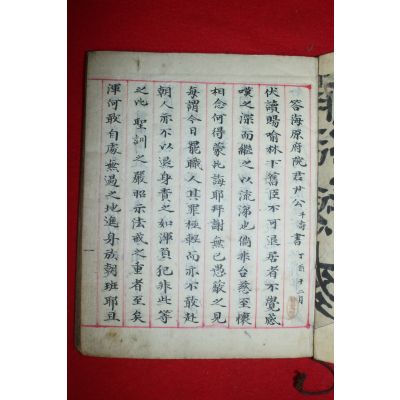 答海原府院君尹公斗壽書 丁酉十二月
伏讀賜喩林下舊臣不可退居者不覺感
嘆之深而繼之以流涕也倘非台慈至懷
相念何得蒙此誨耶拜謝無已愚敢之見
每謂今日罷職人其罪極輕而亦不敢赴
朝人亦不以退身責之如渾負犯非此等
之比聖訓之嚴昭示法戒之重者至矣
渾何敢自處無過之地進身旅朝班耶且